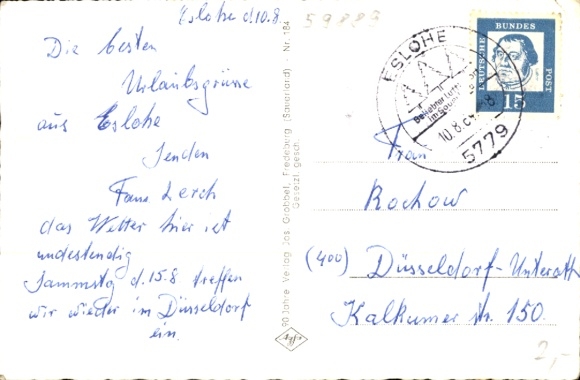 Eslohe d.10.8.
Die besten
Urlaubsgrüsse
aus Eslohe
senden
Fam Lerch
das Wetter hier ist
undestendig
Sammstg d. 15.8 treffen
wir wieder in Düsseldorf
ein.
90 Jahre Verlag Jos. Grobbel, Fredeburg (Sauerland) - Nr. 184
Gesetzl. gesch.
59889
DEUTSCHE BUNDES POST
15
ESLOHE
Beliebter
im
10.8.64
5779
Frau
Rochow
(400) Düsseldorf-Unterath
Kalkumer str. 150.
2,-